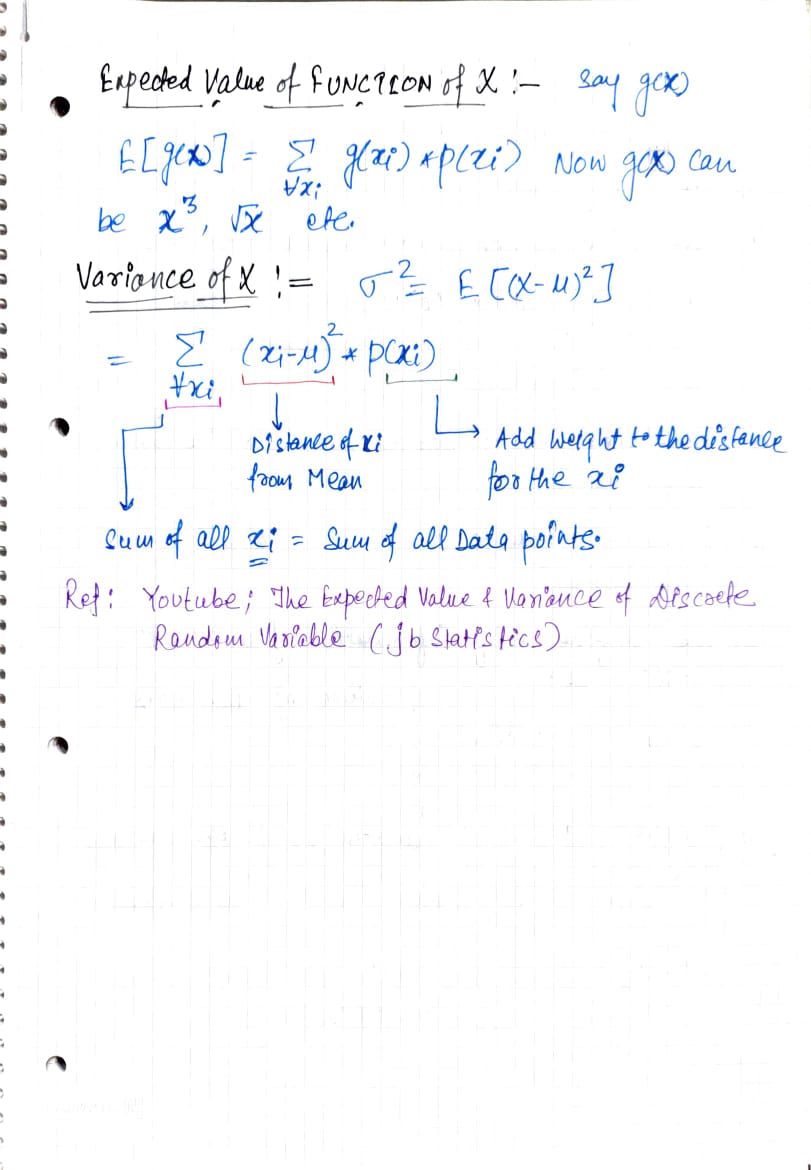 Expected Value of FUNCTION of X :- Say g(X)
E[g(X)] = Σ g(xi) * p(xi) Now g(X) can
∀xi
be x³, √x etc.
Variance of X := σ² = E[(X-μ)²]
= Σ (xi-μ)² * p(xi)
∀xi
Distance of xi
from Mean
Add weight to the distance
for the xi
Sum of all xi = Sum of all Data points.
Ref: Youtube; The Expected Value & Variance of Discrete
Random Variable (jb Statistics)